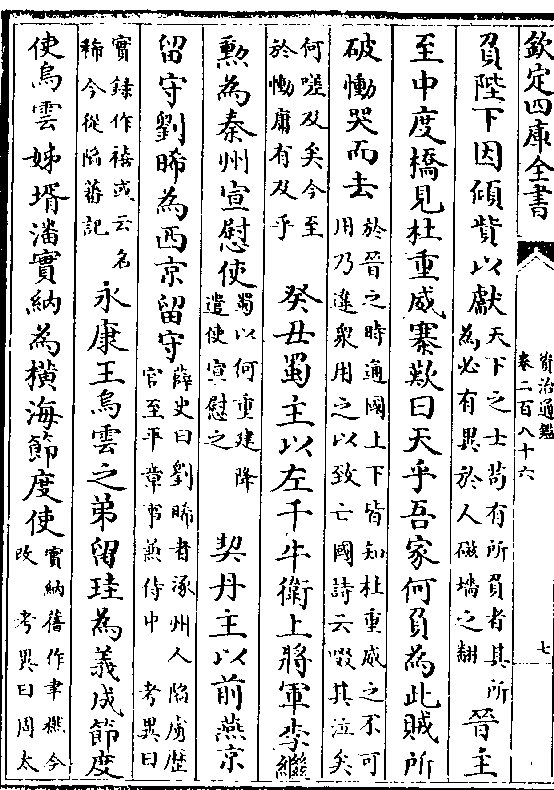 欽定四庫全書
資治通鑑
卷二百八十六
七
負陛下因傾貲以獻
天下之士苟有所負者其所
為必有異於人磁墻之翻
晉主
至中度橋見杜重威寨歎曰天乎吾家何負為此賊所
破慟哭而去
於晉之時通國上下皆知杜重威之不可
用乃違衆用之以致亡國詩云啜其泣矣
何嗟及矣今至
於慟庸有及乎
癸丑蜀主以左千牛衛上將軍李繼
勲為秦州宣慰使
蜀以何重建降
遣使宣慰之
契丹主以前燕京
留守劉晞為西京留守
薛史曰劉晞者涿州人陷虜歴
官至平章事兼侍中 考異曰
實録作禧或云名
稀今從陷蕃記
永康王烏雲之弟留珪為義成節度
使烏雲姊壻潘實納為橫海節度使
實納舊作聿撚今
改 考異曰周太